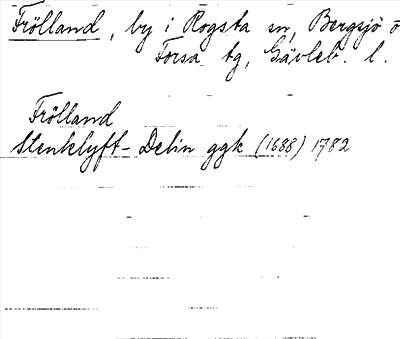 Frölland, by i Rogsta sn, Bergsjö o
Forsa tg, Gävleb. l.
Frölland
Stenklyft-Delin ggk (1688) 1782